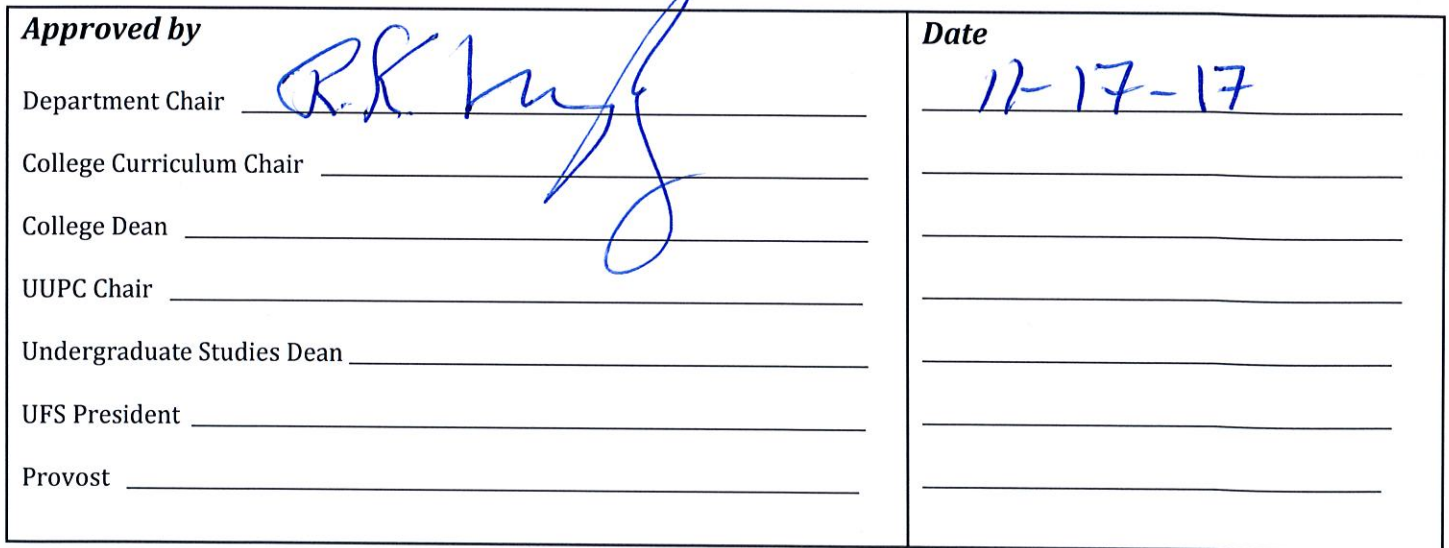 Approved by
Date
Department Chair R.K. 11-17-17
College Curriculum Chair
College Dean
UUPC Chair
Undergraduate Studies Dean
UFS President
Provost